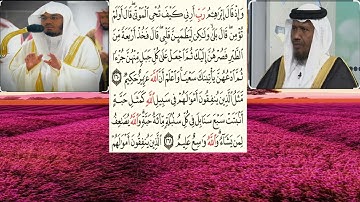 وَإِذْ قَالَ إِبْرَٰهِـۧمُ رَبِّ أَرِنِى كَيْفَ تُحْىِ ٱلْمَوْتَىٰ قَالَ أَوَلَمْ
تُؤْمِن قَالَ بَلَىٰ وَلَـٰكِن لِّيَطْمَئِنَّ قَلْبِى قَالَ فَخُذْ أَرْبَعَةً مِّنَ
ٱلطَّيْرِ فَصُرْهُنَّ إِلَيْكَ ثُمَّ ٱجْعَلْ عَلَىٰ كُلِّ جَبَلٍ مِّنْهُنَّ جُزْءًا
ثُمَّ ٱدْعُهُنَّ يَأْتِينَكَ سَعْيًا وَٱعْلَمْ أَنَّ ٱللَّهَ عَزِيزٌ حَكِيمٌ ٢٦٠
مَّثَلُ ٱلَّذِينَ يُنفِقُونَ أَمْوَٰلَهُمْ فِى سَبِيلِ ٱللَّهِ كَمَثَلِ حَبَّةٍ
أَنۢبَتَتْ سَبْعَ سَنَابِلَ فِى كُلِّ سُنۢبُلَةٍ مِّا۟ئَةُ حَبَّةٍ وَٱللَّهُ يُضَـٰعِفُ
لِمَن يَشَآءُ وَٱللَّهُ وَٰسِعٌ عَلِيمٌ ٢٦١ ٱلَّذِينَ يُنفِقُونَ أَمْوَٰلَهُمْ